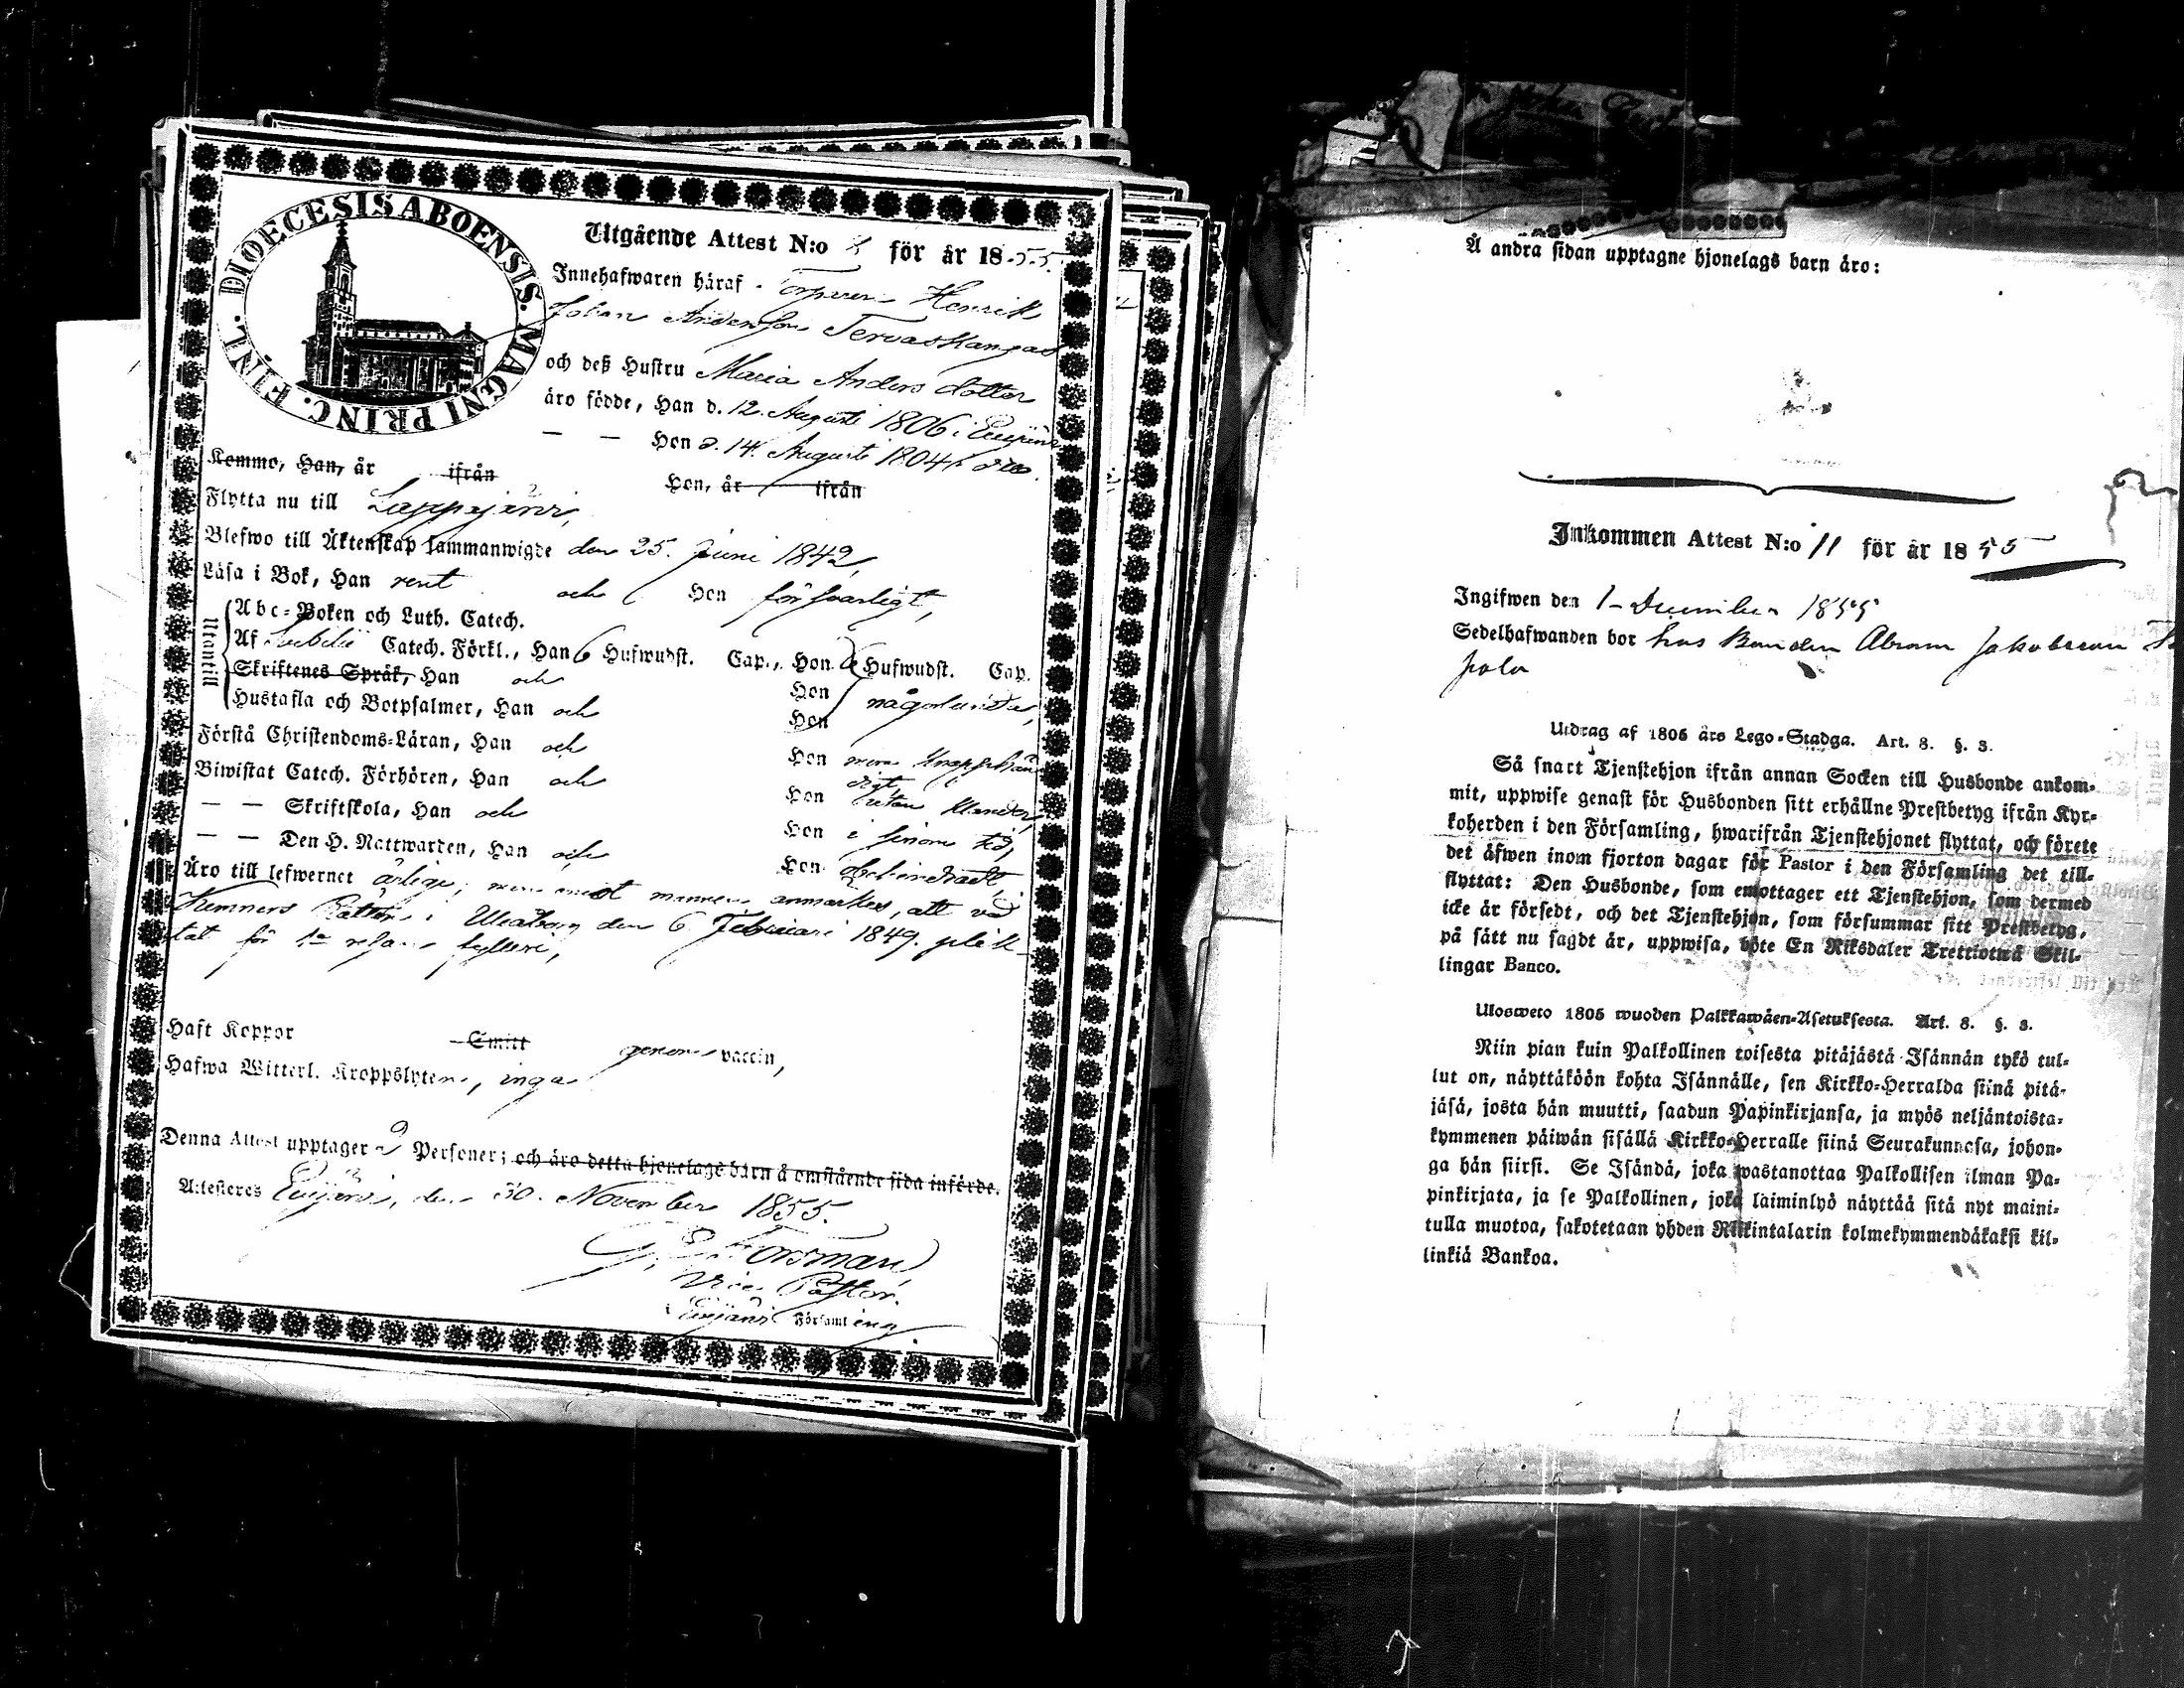 DIOECESIS ABOENSIS. MAGNI PRINC. FINL.
Utgående Attest N:o för år 1855.
Innehafwaren häraf Torparen Henrik
Johan Andersson Tervaskangas
och deß Hustru Maria Anders dotter
äro födde, Han d. 12. Augusti 1806 i Evijärvi
— — Hon d. 14. Augusti 1804
Kommo, Han, år ifrån Hon, år ifrån
Flytta nu till Lappajärvi,
Blefwo till Äktenskap sammanwigde den 25. Juni 1842,
Läsa i Bok, Han rent och Hon försvarligt,
Utantill
Abc-Boken och Luth. Catech.
Af Svebelii Catech. Förkl., Han 6 Hufwudst. Cap., Hon 6 Hufwudst. Cap.
Skriftenes Språk, Han och Hon
Hustafla och Botpsalmer, Han och Hon någorlunda,
Förstå Christendoms-Läran, Han och Hon mera knapphän
digt,
Biwistat Catech. Förhören, Han och Hon utan klander,
— — Skriftskola, Han och Hon i sinom tid,
— — Den H. Nattwarden, Han och Hon obehindradt,
Äro till lefwernet ärlige; men emot mannen anmärkes, att vid
Kemners Rätten i Uleåborg den 6 Februari 1849. plik-
tat för 1a resans fylleri,
Haft Koppor Smitt genom vaccin,
Hafwa Witterl. Kroppslyten, inga
Denna Attest upptager 2 Personer; och äro detta hjonelags barn å omstående sida införde.
Attesteres Evijärvi, den 30. November 1855.
G. Forsman
Vice Pastor.
Evijärvi Församling.
Å andra sidan upptagne hjonelags barn äro:
Inkommen Attest N:o 11 för år 1855
Ingifwen den 1 December 1855
Sedelhafwanden bor hos Bonden Abram Jakobsson
pola
Utdrag af 1805 års Lego-Stadga. Art. 8. §. 3.
Så snart Tjenstehjon ifrån annan Socken till Husbonde ankom-
mit, uppwise genast för Husbonden sitt erhållne Prestbetyg ifrån Kyr-
koherden i den Församling, hwarifrån Tjenstehjonet flyttat, och förete
det äfwen inom fjorton dagar för Pastor i den Församling det till-
flyttat: Den Husbonde, som emottager ett Tjenstehjon, som dermed
icke är försedt, och det Tjenstehjon, som försummar sitt Prestbetyg,
på sätt nu sagdt är, uppwisa, böte En Riksdaler Trettiotwå Skil-
lingar Banco.
Ulosweto 1805 wuoden Palkkawäen-Asetuksesta. Art. 8. §. 3.
Niin pian kuin Palkollinen toisesta pitäjästä Isännän tykö tul-
lut on, näyttäköön kohta Isännälle, sen Kirkko-Herralda siinä pitä-
jäsä, josta hän muutti, saadun Papinkirjansa, ja myös neljäntoista-
kymmenen päiwän sisällä Kirkko-Herralle siinä Seurakunnasa, johon-
ga hän siirsi. Se Isändä, joka wastanottaa Palkollisen ilman Pa-
pinkirjata, ja se Palkollinen, joka laiminlyö näyttää sitä nyt maini-
tulla muotoa, sakotetaan yhden Riikintalarin kolmekymmendäkaksi kil-
linkiä Bankoa.